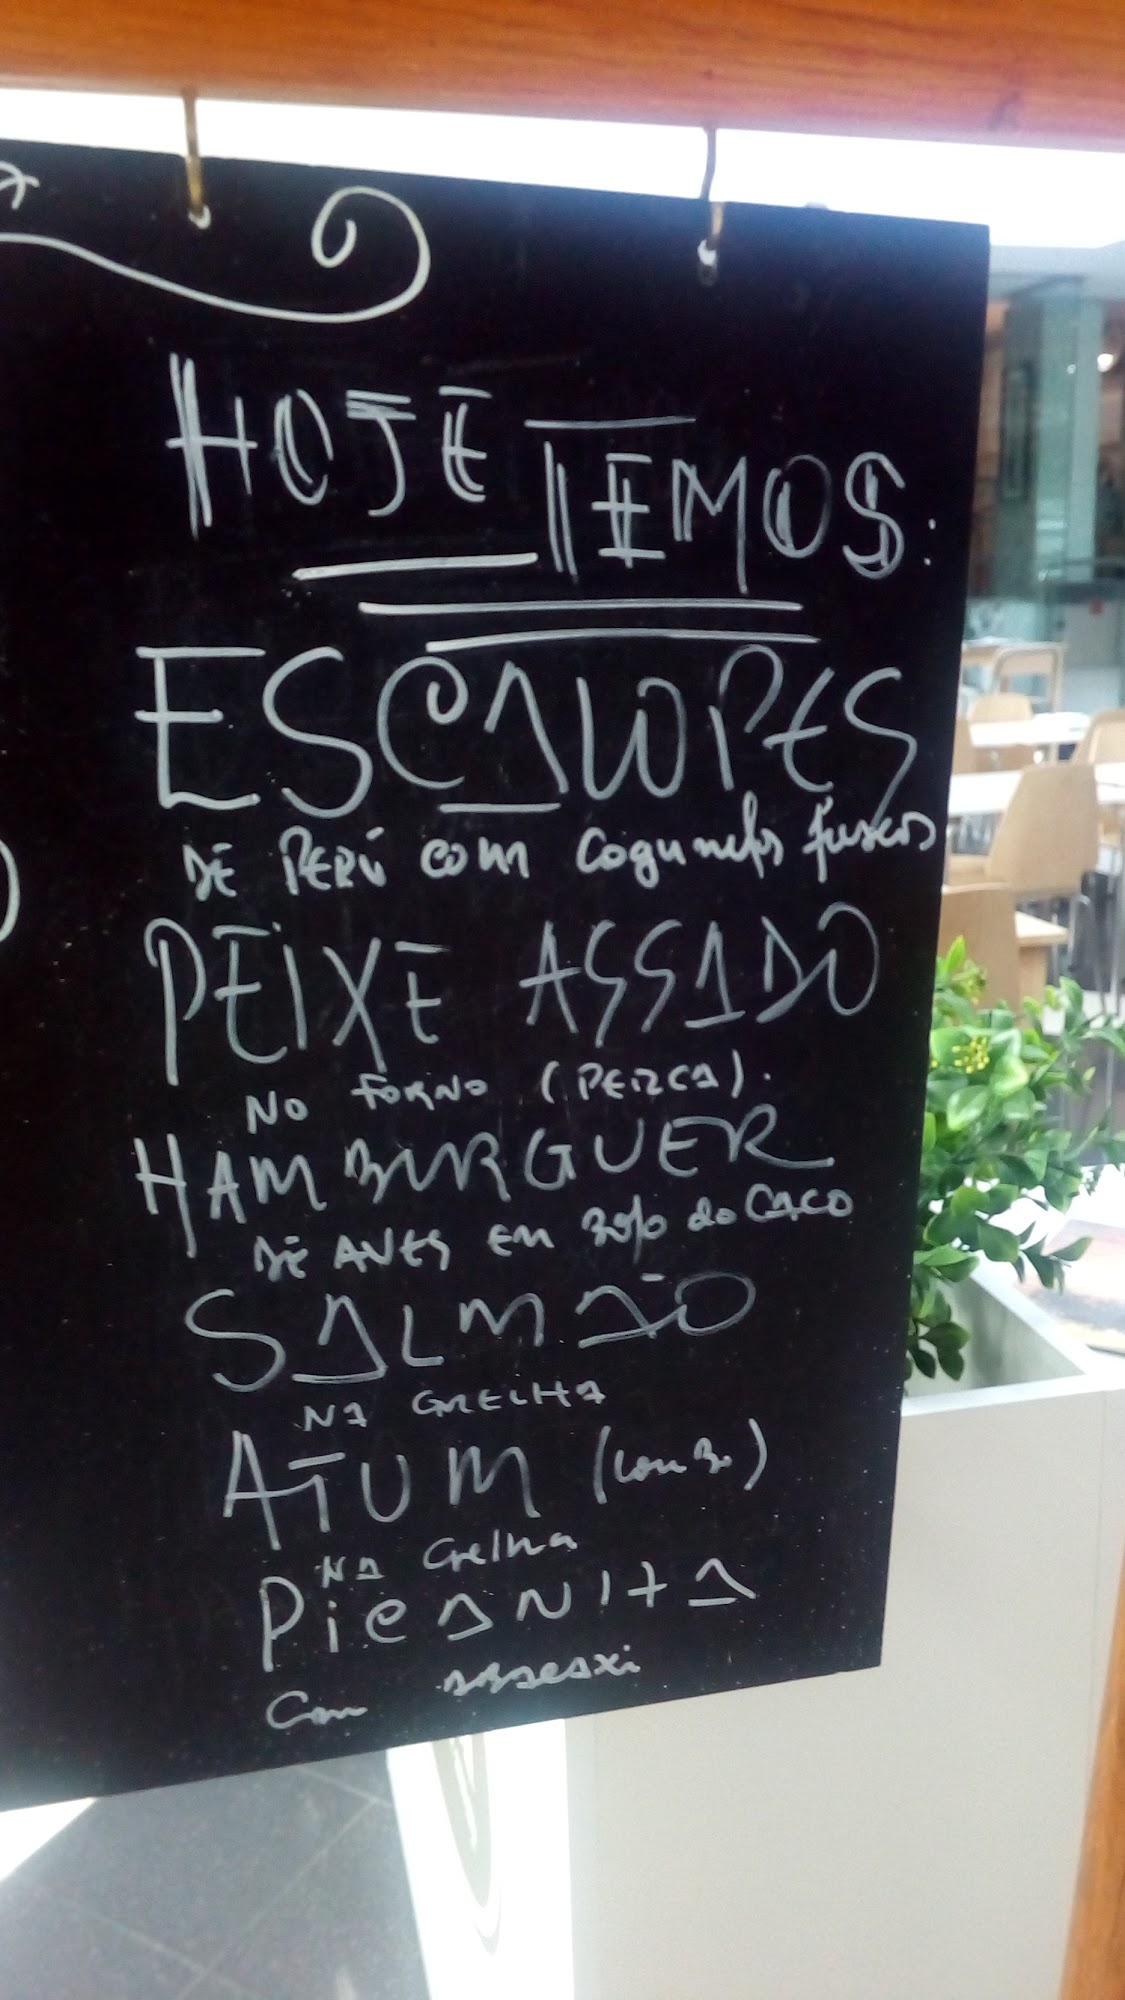 HOJE TEMOS:
ESCALOPES
DE PERÚ COM Cogumelos frescos
PEIXE ASSADO
NO FORNO (PERCA).
HAMBURGUER
DE AVES EM Bolo do CACO
SALMÃO
NA GRELHA
ATUM (Lombo)
NA Grelha
PiCANHA
Com ABACAXi